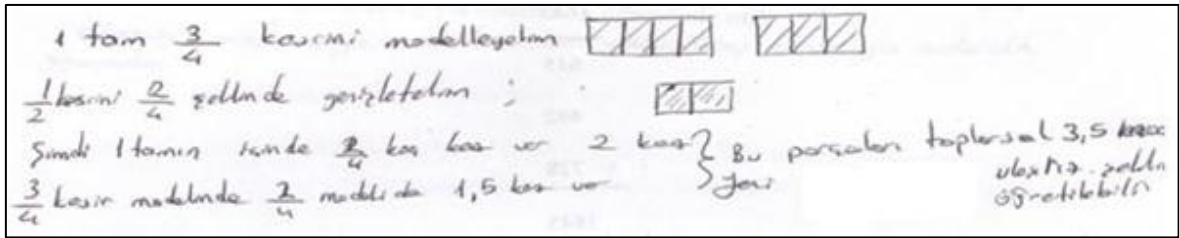 1 tam 3/4 kesrini modelleyelim
1/2 kesrini 2/4 şeklinde genişletelim ;
Şimdi 1 tamın içinde 2/4 kaç kez var 2 kez
3/4 kesir modelinde 2/4 modeli de 1,5 kez var yeni
Bu parçaları toplarsak 3,5
ulaşırız. şeklin
öğretilebilir